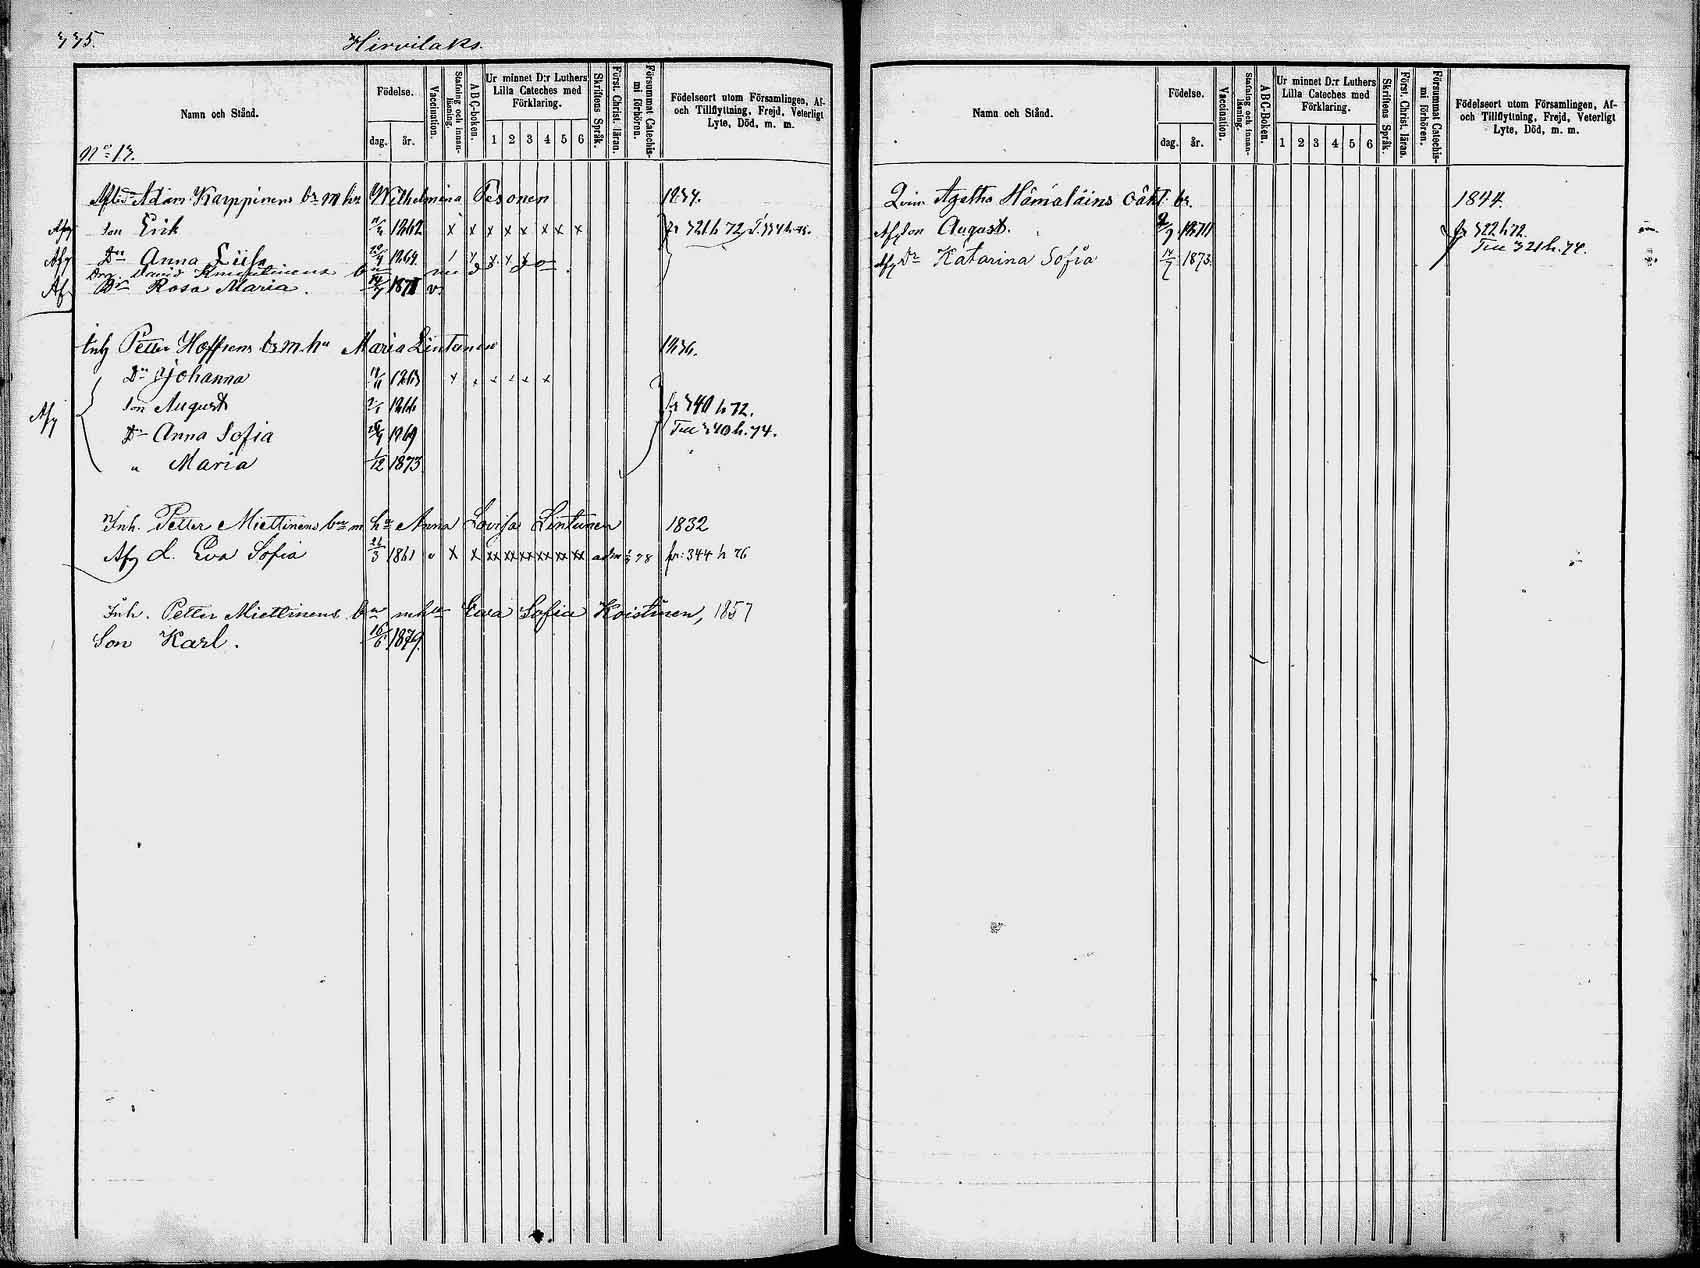 775.
Hirvilaks.
Namn och Stånd.
Födelse.
dag. år.
Vaccination.
Stafning och innanläsning.
ABC-Boken.
Ur minnet D:r Luthers Lilla Cateches med Förklaring.
1 2 3 4 5 6
Skriftens Språk.
Först. Christ. läran.
Försummat Catechismi förhören.
Födelseort utom Församlingen, Af- och Tillflyttning, Frejd, Veterligt Lyte, Död, m. m.
No 13.
Adam Karppinens bn m hu Wilhelmina Pesonen 1834.
Afg Son Erik 1862 x x x x x x x x fr 321 h 72
Afg Dr Anna Liisa 1864
Dr Rosa Maria. 1871 v
Inh Petter Hoffrens bn m. hu Maria Lintunen 1836.
Dr Johanna 1863
Son August 1866 fr 340 h 72.
Afg Dr Anna Sofia 1869 Till 340 h. 74.
" Maria 1/12 1873
Inh. Petter Miettinens bn m hu Anna Lovisa Lintunen 1832
Afg d. Eva Sofia 26/3 1861 v x x xx xx xx xx xx xx adm 78 fr: 344 h 76
Inh. Petter Miettinens bn m hu Eva Sofia Koistinen, 1857
Son Karl. 16/6 1879.
Namn och Stånd.
Födelse.
dag. år.
Vaccination.
Stafning och innanläsning.
ABC-Boken.
Ur minnet D:r Luthers Lilla Cateches med Förklaring.
1 2 3 4 5 6
Skriftens Språk.
Först. Christ. läran.
Försummat Catechismi förhören.
Födelseort utom Församlingen, Af- och Tillflyttning, Frejd, Veterligt Lyte, Död, m. m.
Qvin Agatha Hämäläins oäkt. bn. 1844.
Afg Son August. 1871 fr 322 h 72.
Afg Dr Katarina Sofia 1873. Till 321 h. 74.